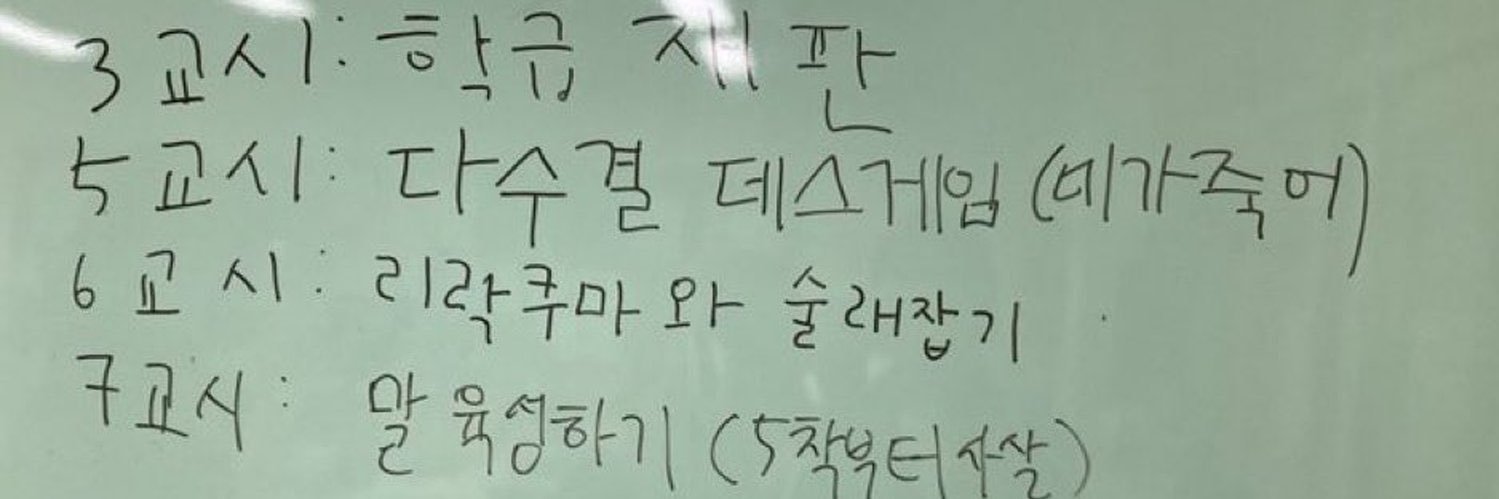 3교시: 학급 재판
5교시: 다수결 데스게임 (네가죽어)
6교시: 리락쿠마와 술래잡기
7교시: 말 육성하기 (5착부터 사살)